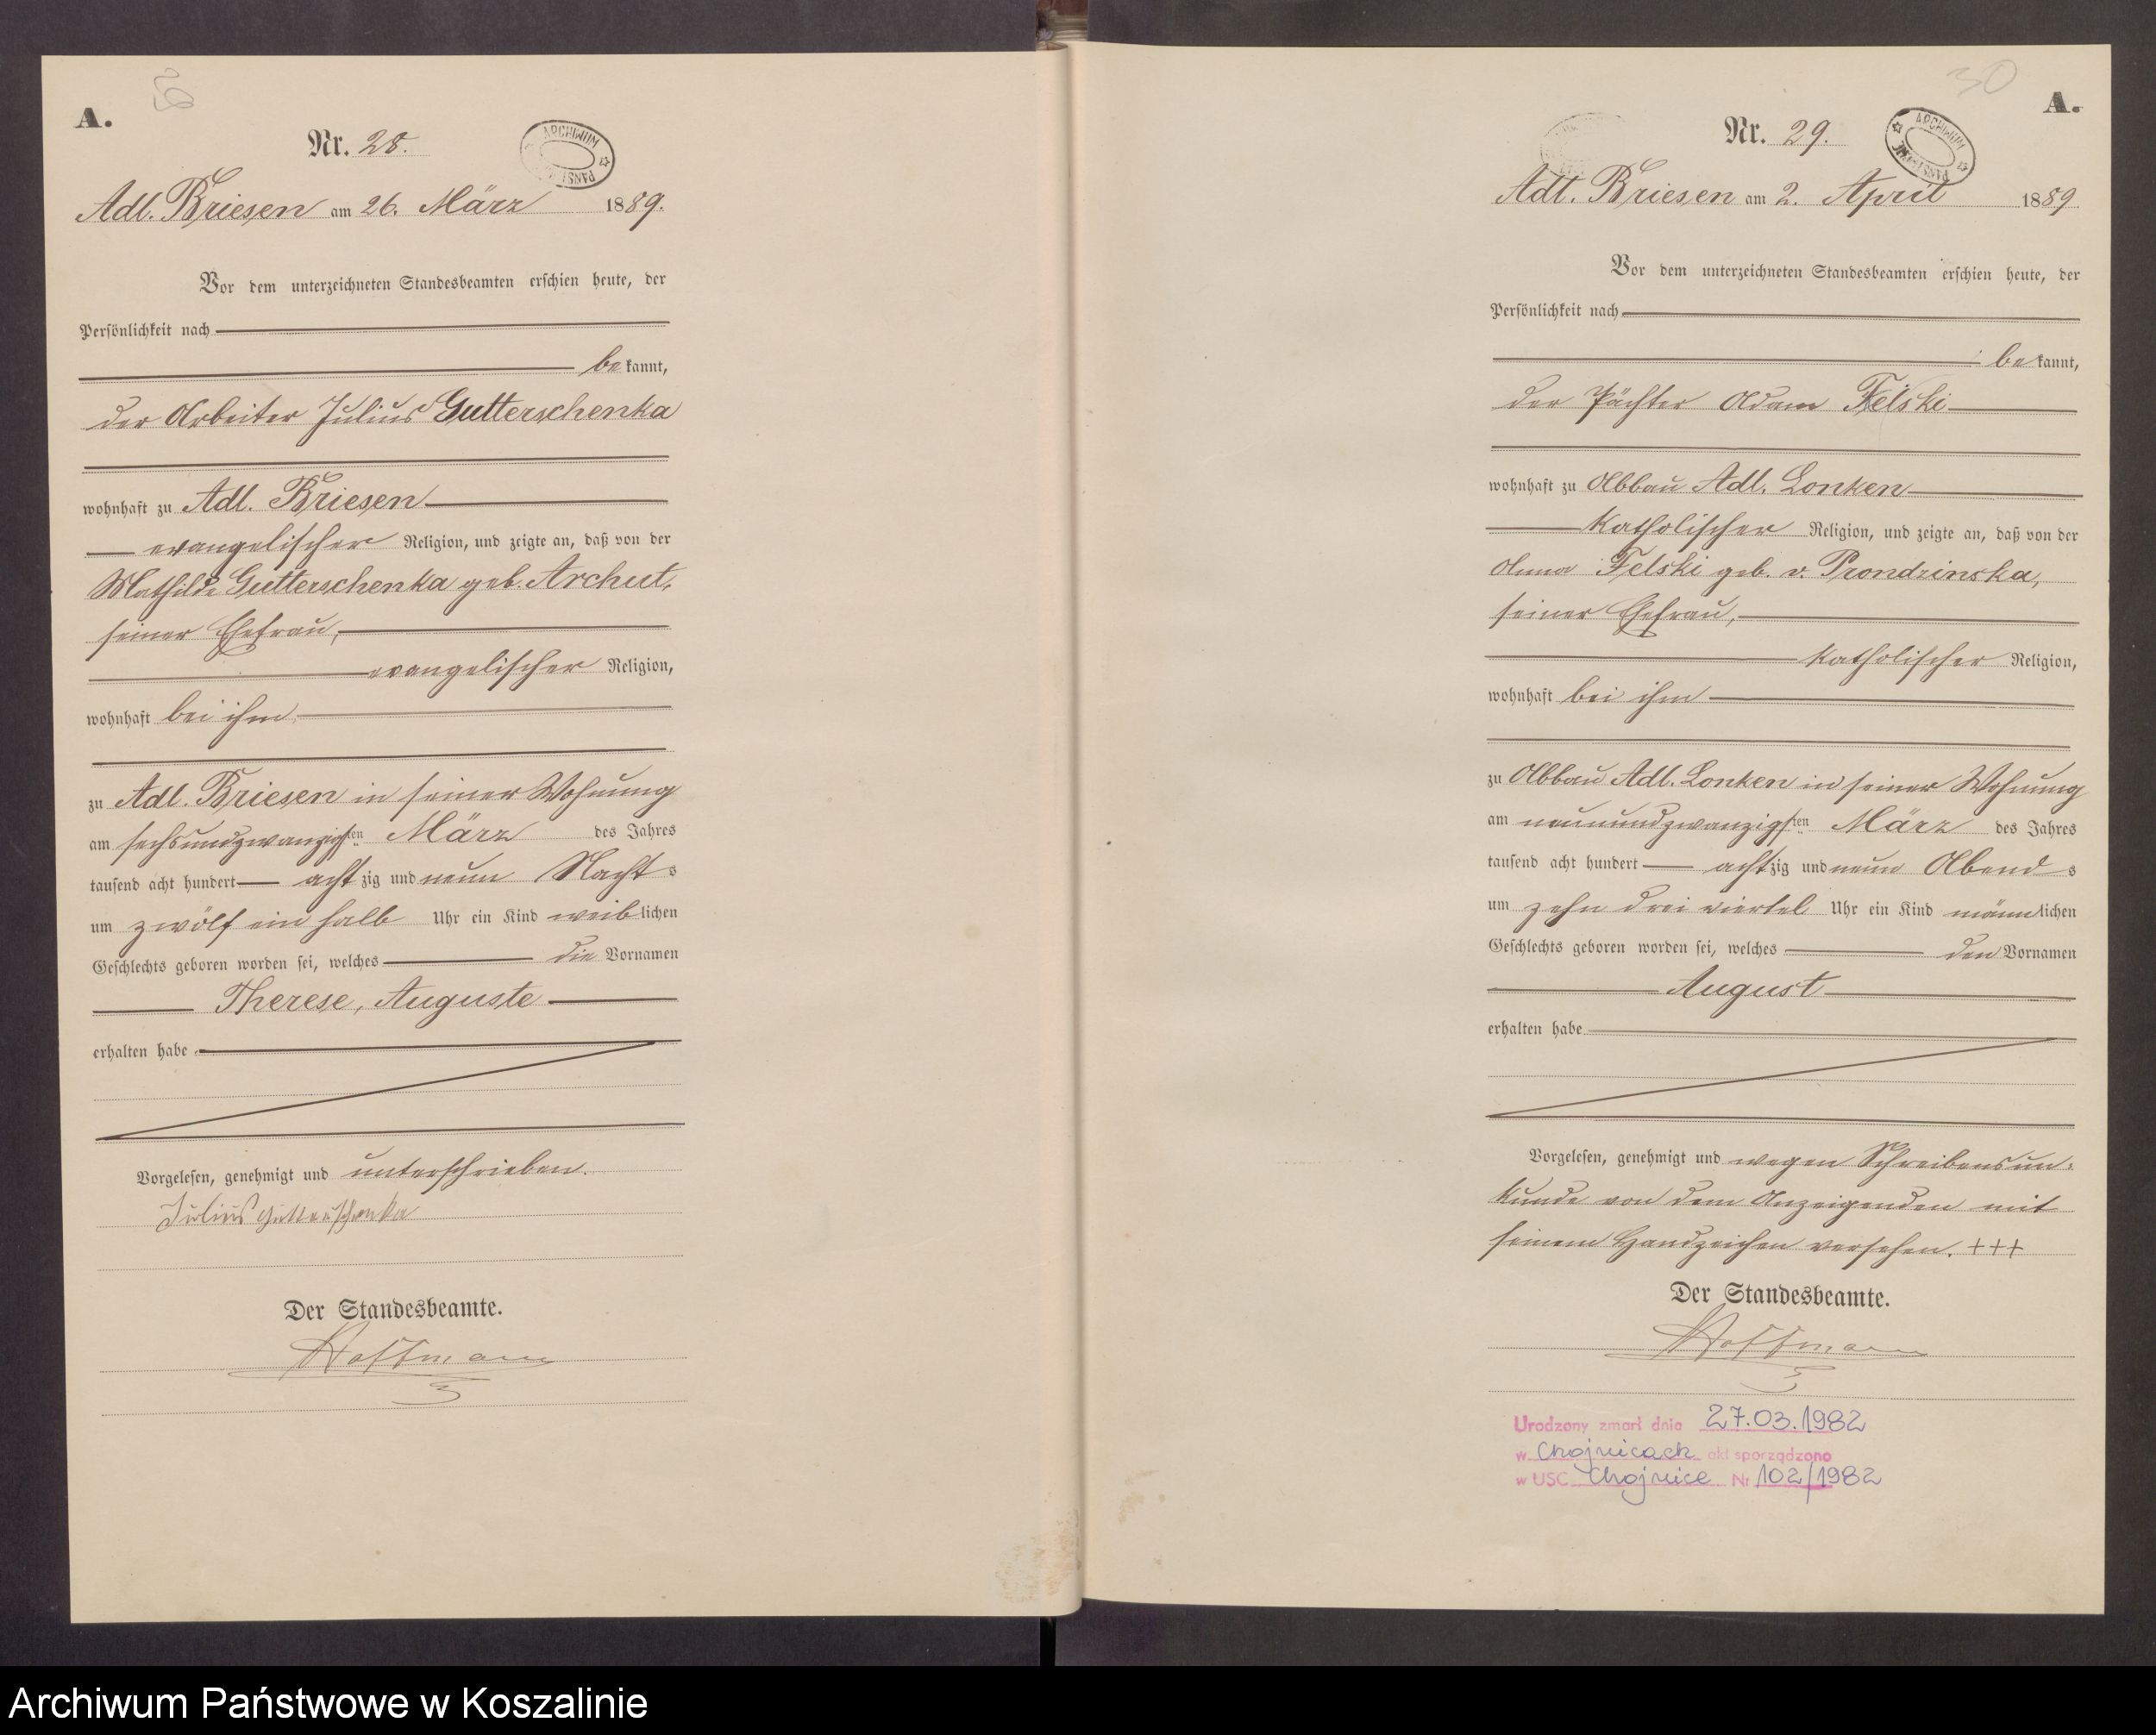 A.
Nr. 28.
Adl. Briesen am 26. März 1889.
Vor dem unterzeichneten Standesbeamten erschien heute, der
Persönlichkeit nach
bekannt,
der Arbeiter Julius Gutterschenka
wohnhaft zu Adl. Briesen
evangelischer Religion, und zeigte an, daß von der
Mathilde Gutterschenka geb. Archut,
seiner Ehefrau,
evangelischer Religion,
wohnhaft bei ihm
zu Adl. Briesen in seiner Wohnung
am sechsundzwanzigsten März des Jahres
tausend acht hundert achtzig und neun Nachts
um zwölf ein halb Uhr ein Kind weiblichen
Geschlechts geboren worden sei, welches die Vornamen
Therese, Auguste
erhalten habe
Vorgelesen, genehmigt und unterschrieben.
Julius Gutterschenka
Der Standesbeamte.
Hoffmann
30
A.
Nr. 29.
ARCHIWUM PAŃSTWOWE
Adl. Briesen am 2. April 1889
Vor dem unterzeichneten Standesbeamten erschien heute, der
Persönlichkeit nach
bekannt,
der Pächter Adam Felski
wohnhaft zu Abbau Adl. Lonken
katholischer Religion, und zeigte an, daß von der
Anna Felski geb. v. Prondzinska,
seiner Ehefrau,
katholischer Religion,
wohnhaft bei ihm
zu Abbau Adl. Lonken in seiner Wohnung
am neunundzwanzigsten März des Jahres
tausend acht hundert achtzig und neun Abends
um zehn drei viertel Uhr ein Kind männlichen
Geschlechts geboren worden sei, welches den Vornamen
August
erhalten habe
Vorgelesen, genehmigt und wegen Schreibensun-
kunde von dem Anzeigenden mit
seinem Handzeichen versehen. +++
Der Standesbeamte.
Hoffmann
Urodzony zmarł dnia 27.03.1982
w Chojnicach akt sporządzono
w USC Chojnice Nr 102/1982
Archiwum Państwowe w Koszalinie